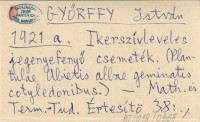 GYŐRFFY István
1921 a. Ikerszívleveles
jegenyefenyő csemeték. (Plan-
tulae Abietis albae geminatis
cotyledonibus.) — Math. és
Term.-Tud. Értesítő 38: